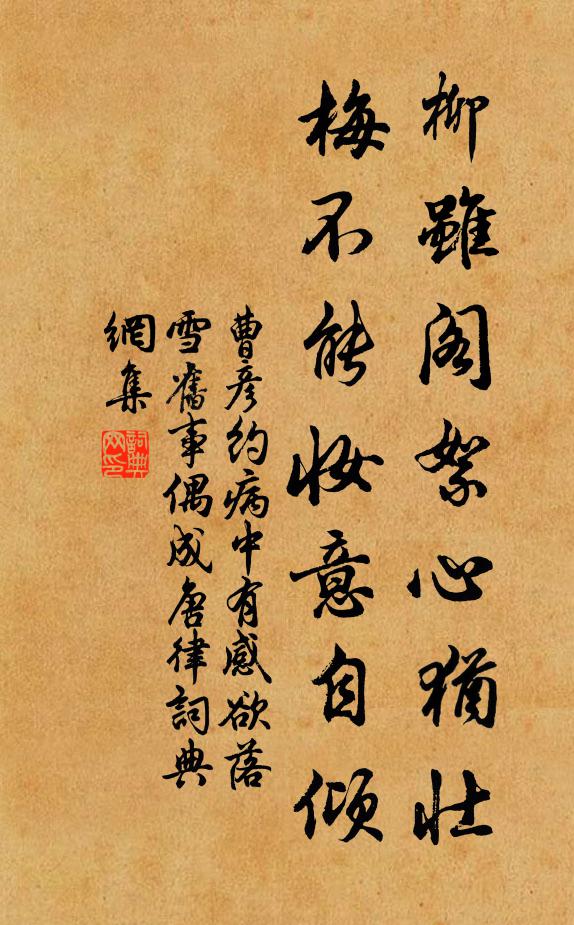 柳雖阁絮心猶壮
梅不能妝意自傾
曹彦约病中有感欲落
雪舊事偶成唐律詞典
網集
詞典
网印